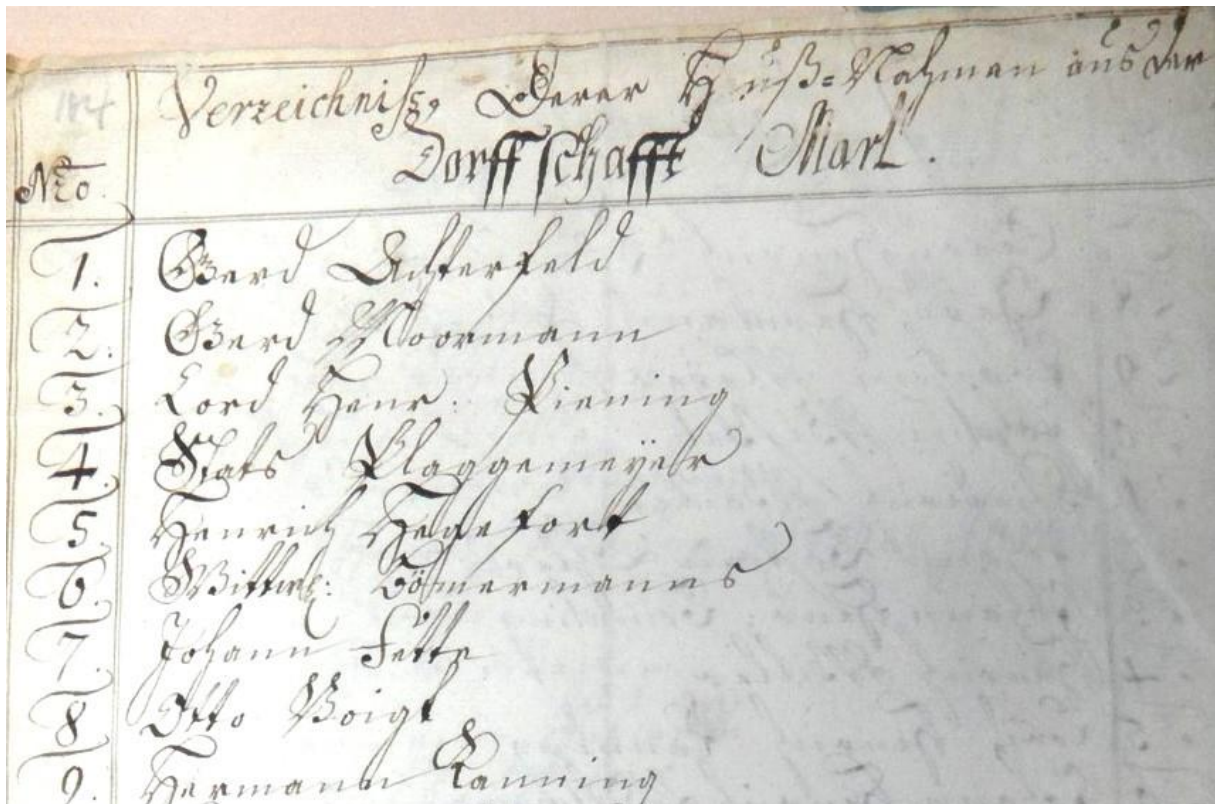 184
Verzeichniß, Derer Huß=Nahmen aus der
Dorffschafft Marl.
Nro.
1. Gerd Achterfeld
2. Gerd Moormann
3. Cord Henr: Piening
4. Stats Plaggemeÿer
5. Henrich Hegefort
6. Wittwe: Bömermanns
7. Johann Fette
8. Otto Voigt
9. Hermann Kanning